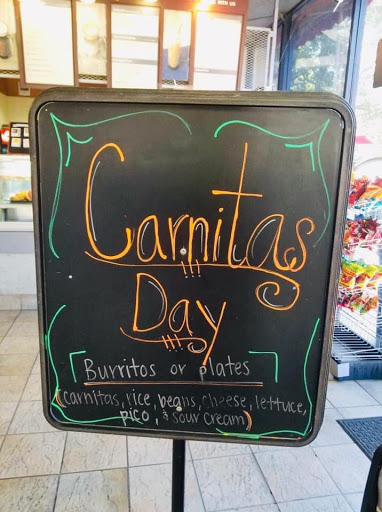 Carnitas
!!!
Day
!!!
Burritos or plates
(carnitas, rice, beans, cheese, lettuce,
pico, & sour cream)